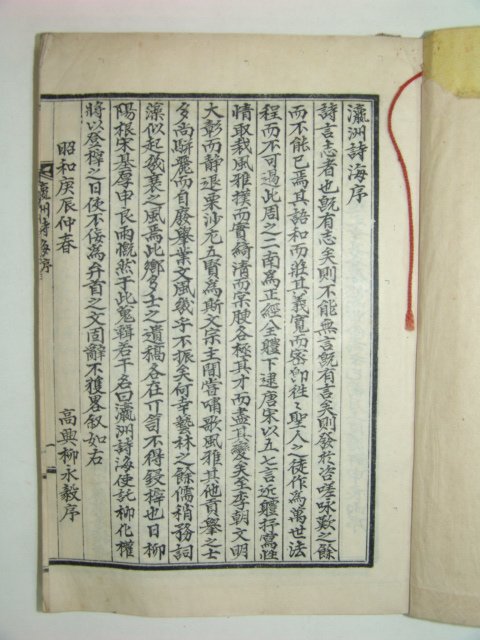 瀛洲詩海序
詩言志者也旣有志矣則不能無言旣有言矣則發於咨嗟咏歎之餘
而不能已焉其語和而莊其義寬而密卽徃〻聖人之徒作爲萬世法
程而不可過此周之二南爲正經全軆下逮唐宋以五七言近軆抒寫性
情取裁風雅撲而實綺淸而腴各極其才而盡其變矣至李朝文明
大彰而靜退栗沙尤五賢爲斯文宗主間嘗嘯歌風雅其他貢擧之士
多尙騈麗而自廢擧業文風幾乎不振矣何幸藝林之餘儒稍務詞
藻似起衰之風焉此鄕多士之遺稿各在巾笥不得鋟榟也日柳
陽根宋基厚申艮雨慨然于此蒐輯若干名曰瀛洲詩海使託柳化權
將以登榟之日使不佞爲弁首之文固辭不獲畧叙如右
昭和庚辰仲春
高興柳永毅序
瀛洲詩海序